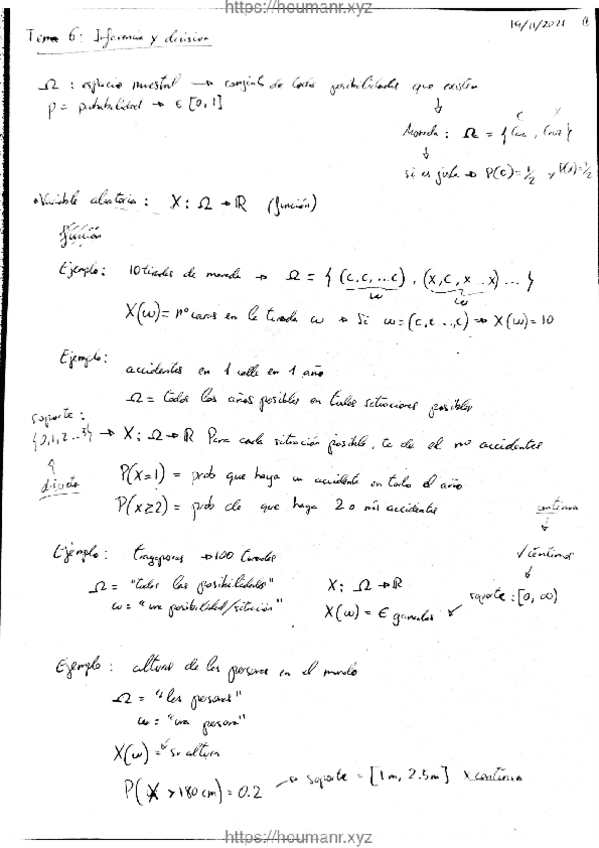 https://houmanr.xyz
19/11/2021 ①
Tema 6: Inferencia y decisión
Ω : espacio muestral → conjunto de todas posibilidades que existen
p = probabilidad → ∈ [0,1]
Moneda : Ω = { Cara , Cruz }
si es justa → P(C)=1/2 y P(X)=1/2
• Variable aleatoria : X : Ω → ℝ (función)
función
Ejemplo: 10 tiradas de moneda → Ω = { (c,c,...c) , (x,c,x...x) ... }
X(ω) = nº caras en la tirada ω → Si ω=(c,c...,c) → X(ω)=10
Ejemplo: accidentes en 1 calle en 1 año
Ω = todos los años posibles en todas situaciones posibles
soporte :
{0,1,2...} → X : Ω → ℝ Para cada situación posible, te da el nº accidentes
discreta
P(X=1) = prob que haya un accidente en todo el año
P(X≥2) = prob de que haya 2 o más accidentes
continua
Ejemplo: tragaperras → 100 tiradas
√ céntimos
Ω = "todas las posibilidades" X : Ω → ℝ
soporte : [0, ∞)
ω = "una posibilidad/situación" X(ω) = € ganados
Ejemplo : altura de las personas en el mundo
Ω = "las personas"
ω = "una persona"
X(ω) = su altura
P( X > 180 cm) = 0.2 → soporte = [1m, 2.5m] X continua
https://houmanr.xyz